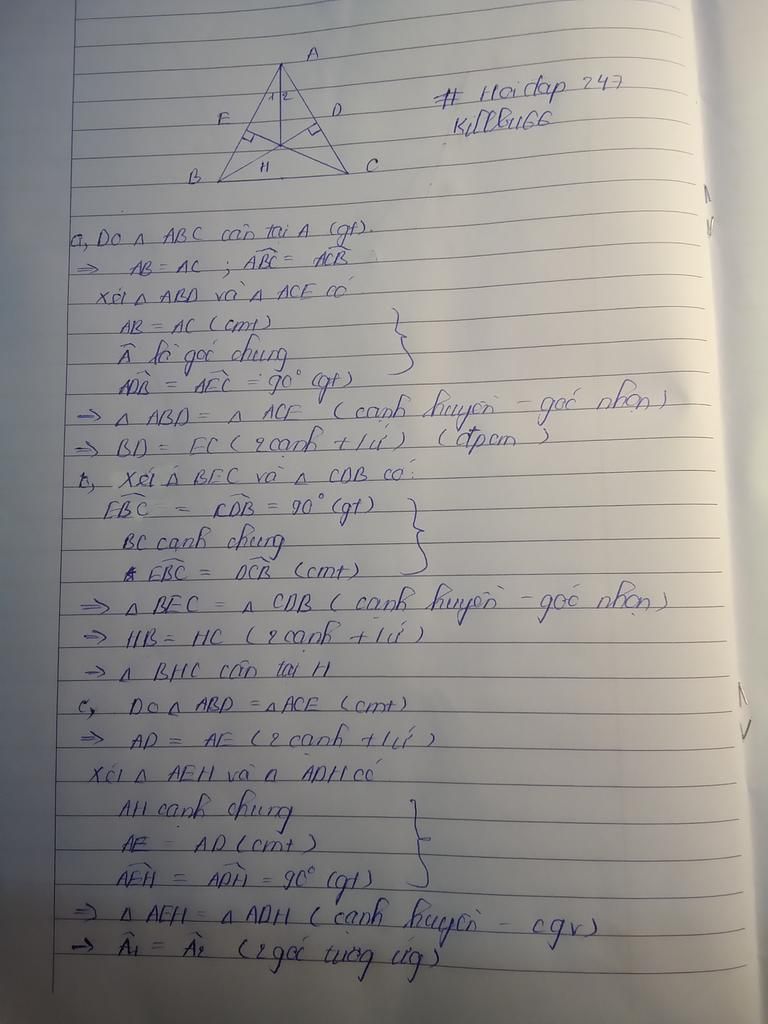 A
1 2
E
D
B
H
C
# Hoidap 247
Killbu66
a, Do Δ ABC cân tại A (gt).
⇒ AB = AC ; ABĈ = ACB̂
Xét Δ ABD và Δ ACE có
AB = AC (cmt)
Â là góc chung
ADB̂ = AEĈ = 90° (gt)
⇒ Δ ABD = Δ ACE (cạnh huyền - góc nhọn)
⇒ BD = EC (2 cạnh t/ứ) (đpcm)
b, Xét Δ BEC và Δ CDB có:
EBĈ = CDB̂ = 90° (gt)
BC cạnh chung
EBĈ = DCB̂ (cmt)
⇒ Δ BEC = Δ CDB (cạnh huyền - góc nhọn)
⇒ HB = HC (2 cạnh t/ứ)
⇒ Δ BHC cân tại H
c, Do Δ ABD = Δ ACE (cmt)
⇒ AD = AE (2 cạnh t/ứ)
Xét Δ AEH và Δ ADH có
AH cạnh chung
AE = AD (cmt)
AEĤ = ADĤ = 90° (gt)
⇒ Δ AEH = Δ ADH (cạnh huyền - cgv)
→ Â1 = Â2 (2 góc tương ứg)